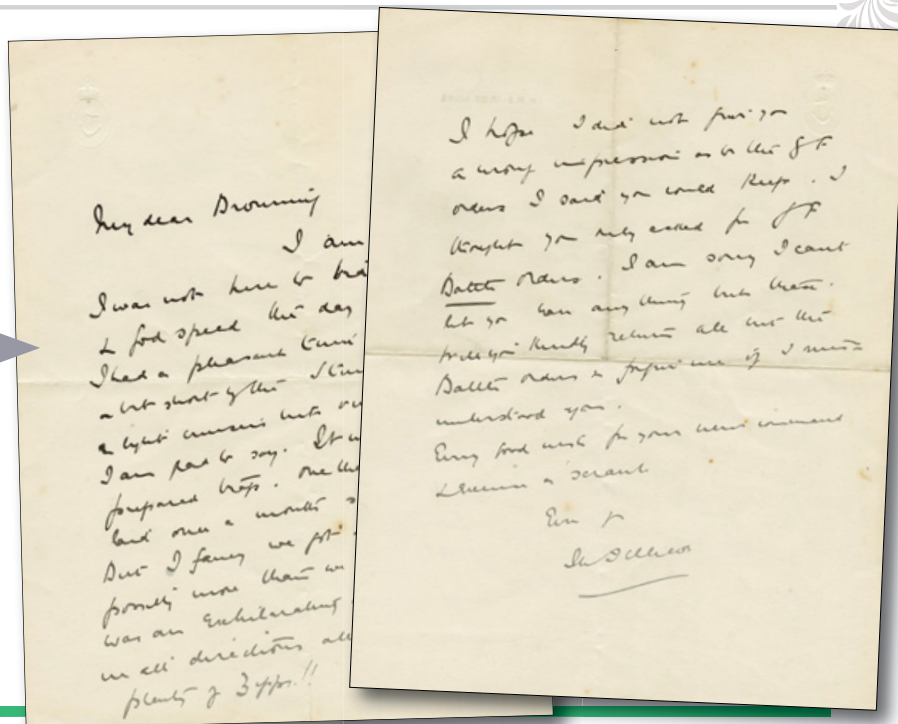 My dear Browning
I am
I was not here to bid
& God speed the day
I had a pleasant time
a bit short of the
a light cruiser but
I am glad to say. It w
prepared traps. One the
laid over a months
But I fancy we got
possibly more than we
was an exhilarating
in all directions all
plenty of Zepps.!!
I hope I did not give you
a wrong impression as to the G F
orders I said you could keep. I
thought you only asked for G F
Battle orders. I am sorry I cant
let you have anything but them.
Will you kindly return all but the
Battle orders & forgive me if I mis=
understood you.
Every good wish for your new command
Ever yr